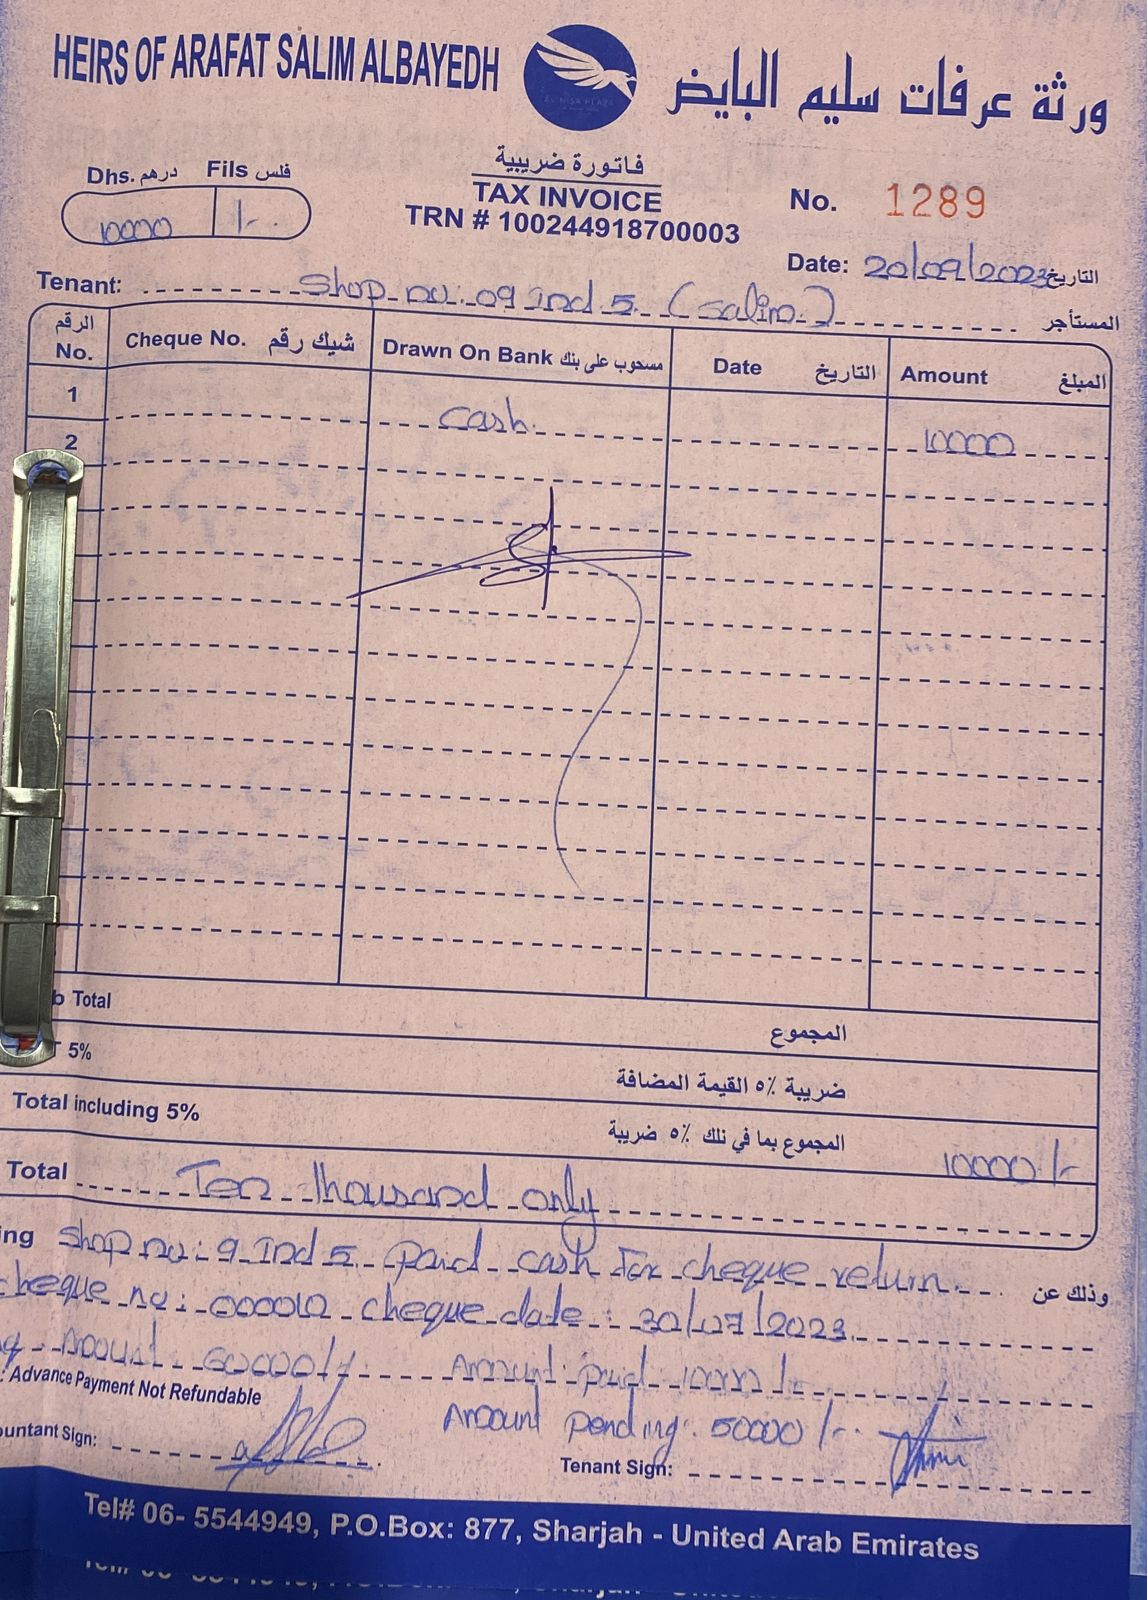 HEIRS OF ARAFAT SALIM ALBAYEDH
ورثة عرفات سليم البايض
فاتورة ضريبية
TAX INVOICE
TRN # 100244918700003
Dhs. درهم Fils فلس
10000 /-
No. 1289
Date: 20/09/2023 التاريخ
Tenant: Shop no: 09 Ind 5 (Salim) المستأجر
الرقم No. Cheque No. شيك رقم Drawn On Bank مسحوب على بنك Date التاريخ Amount المبلغ
1
2 cash 10000
b Total المجموع
5% ضريبة ٥٪ القيمة المضافة
Total including 5% المجموع بما في ذلك ٥٪ ضريبة 10000/-
Total Ten thousand only
ing Shop no: 9 Ind 5 paid cash for cheque return وذلك عن
cheque no: 000010 cheque date: 30/07/2023
Amount 60000/- Amount paid 10000/-
: Advance Payment Not Refundable
Amount pending: 50000/-
ountant Sign:
Tenant Sign:
Tel# 06- 5544949, P.O.Box: 877, Sharjah - United Arab Emirates